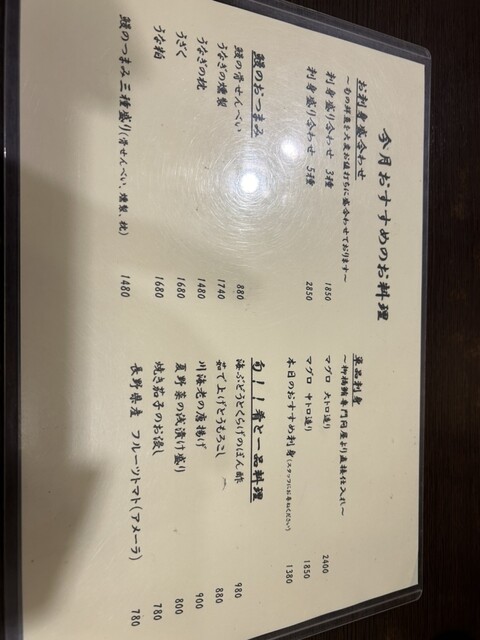 今月おすすめのお料理
お刺身盛合わせ
～旬の鮮魚を大皮お値打ちに盛合わせております～
刺身盛り合わせ 3種 1850
刺身盛り合わせ 5種 2850
鰻のおつまみ
鰻の骨せんべい 880
うなぎの燻製 1740
うなぎの枕 1480
うざく 1680
うな粕 1680
鰻のつまみ三種盛り(骨せんべい、燻製、枕) 1480
単品刺身
マグロ 大トロ造り 2400
マグロ 中トロ造り 1850
本日のおすすめ刺身(スタッフにお尋ねください) 1380
旬!!肴と一品料理
海ぶどうとくらげのぽん酢 980
茹で上げとうもろこし 880
川海老の唐揚げ 900
夏野菜の浅漬け盛り 800
焼き茄子のお浸し 780
長野県産 フルーツトマト(アメーラ) 780